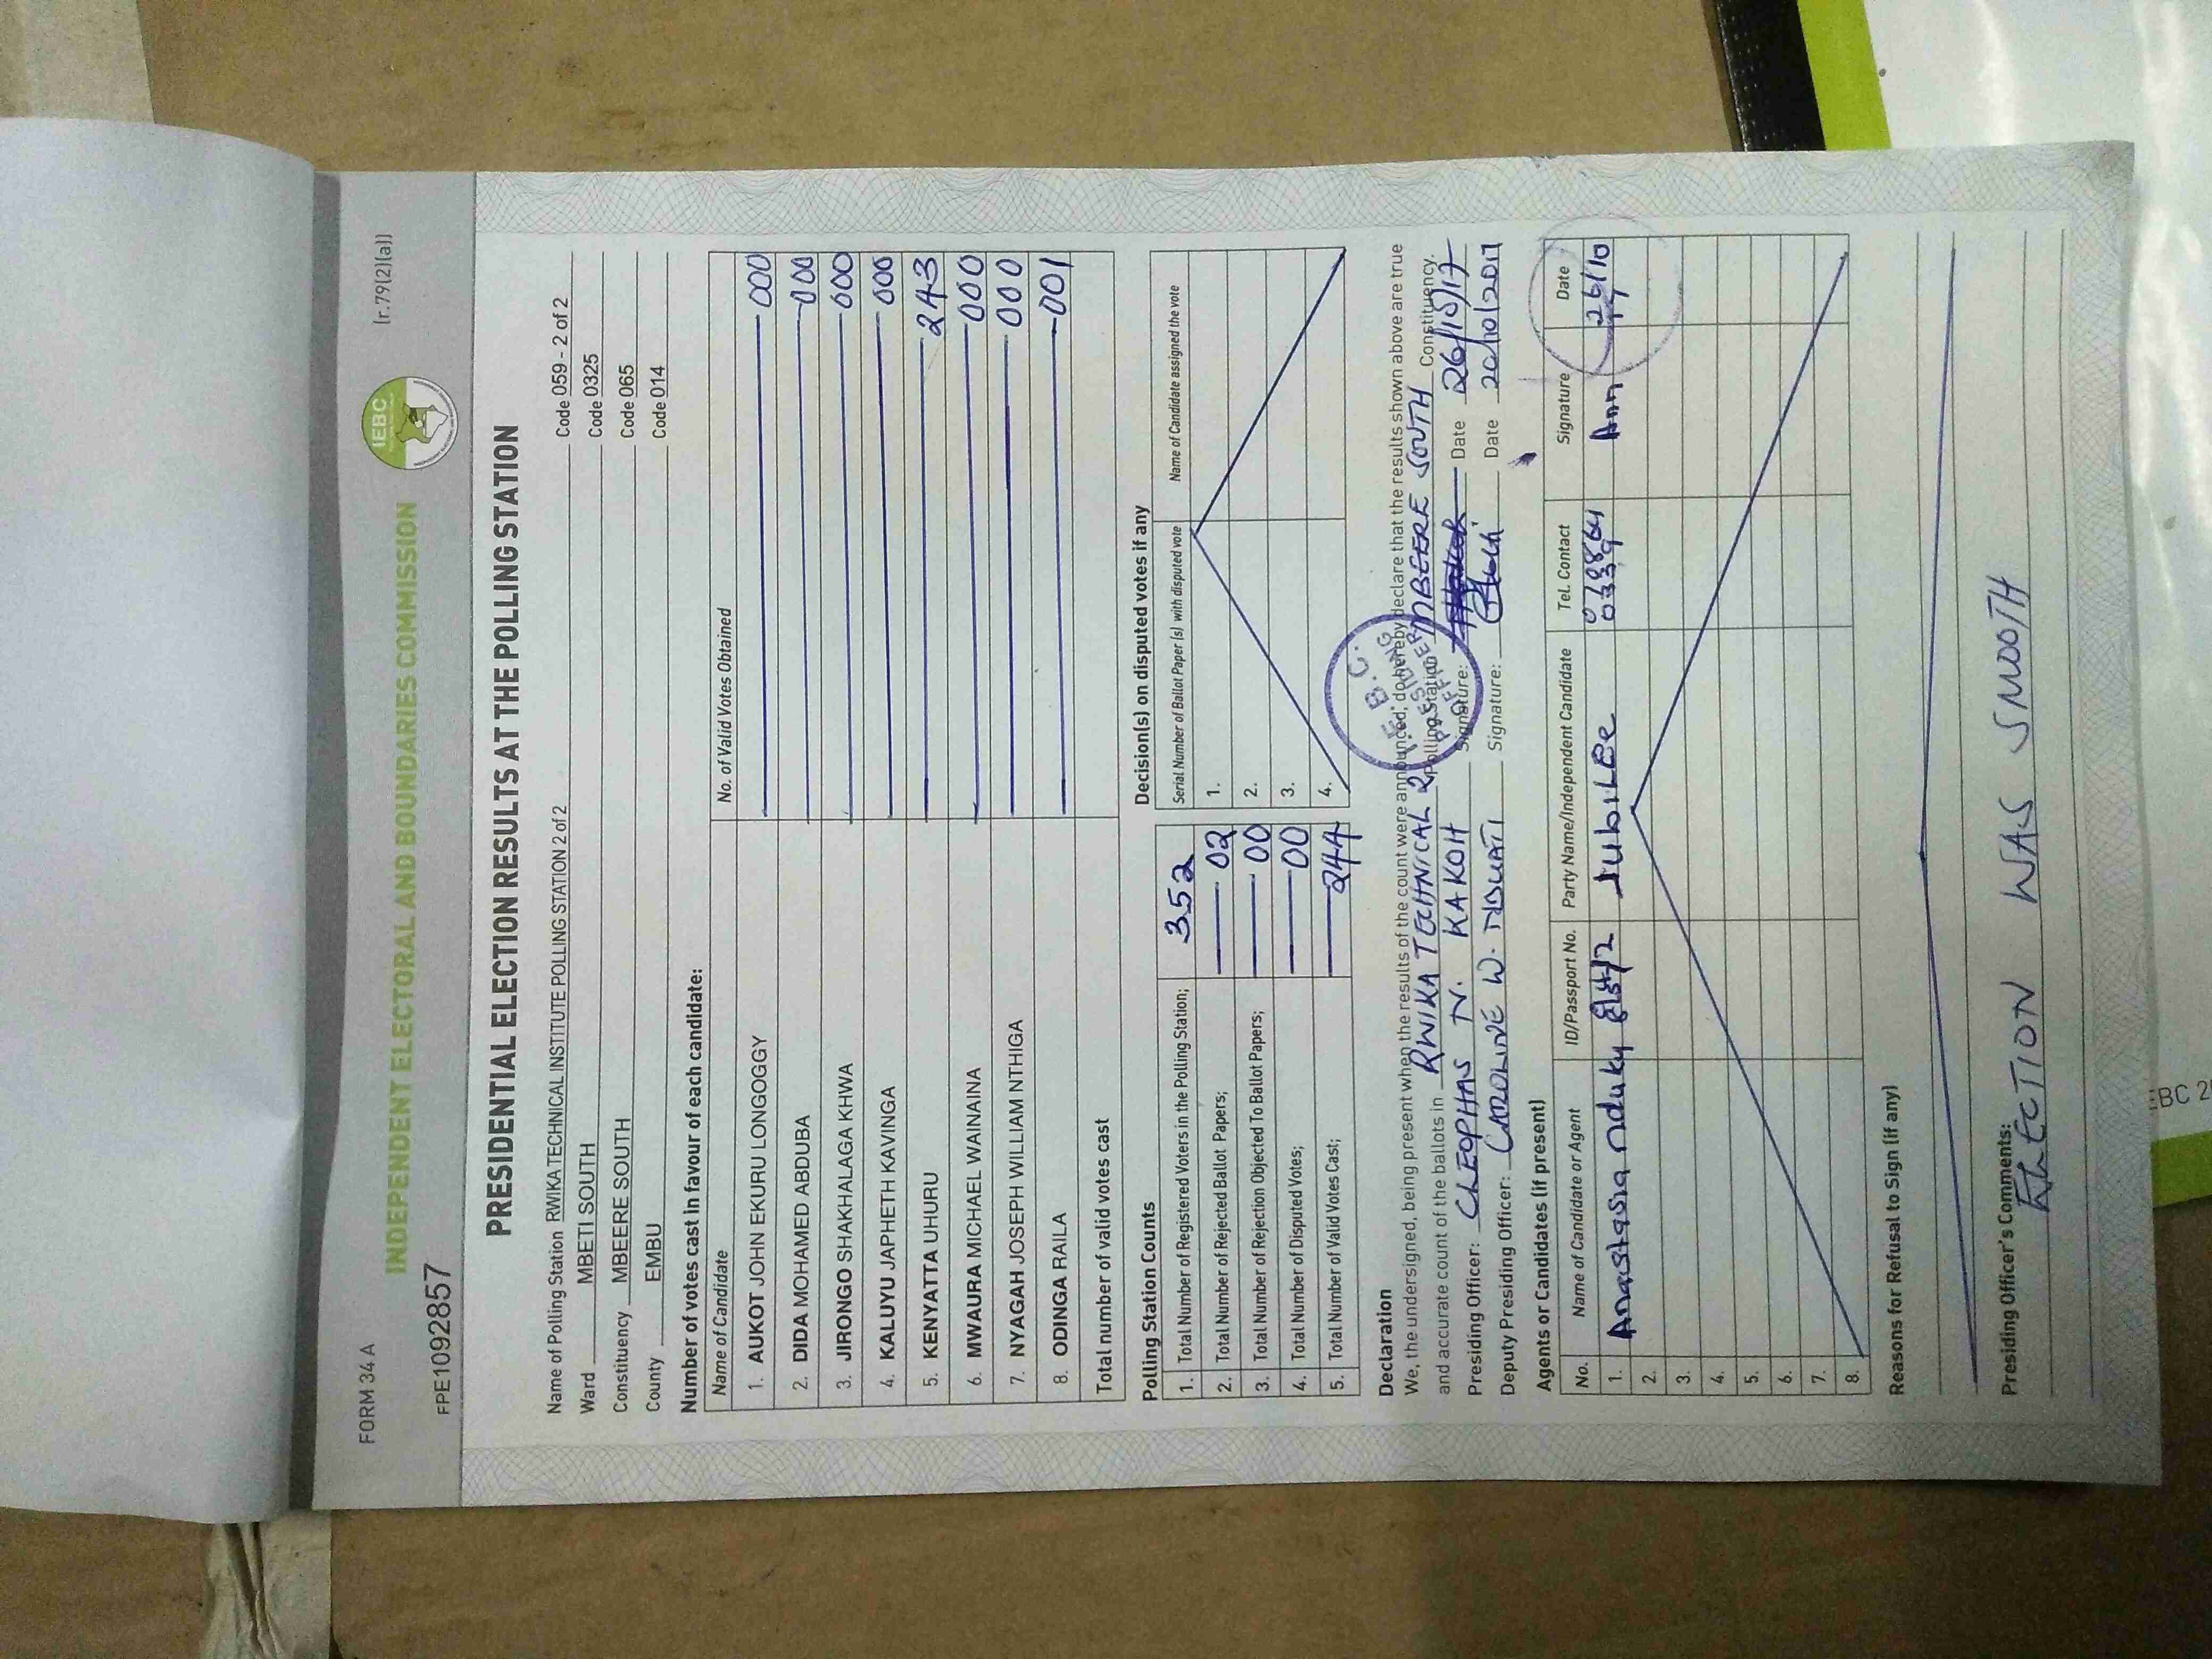 FORM 34 A
(r.79(2)(a))
IEBC
INDEPENDENT ELECTORAL AND BOUNDARIES COMMISSION
FPE1092857
PRESIDENTIAL ELECTION RESULTS AT THE POLLING STATION
Name of Polling Station RWIKA TECHNICAL INSTITUTE POLLING STATION 2 of 2 Code 059 - 2 of 2
Ward MBETI SOUTH Code 0325
Constituency MBEERE SOUTH Code 065
County EMBU Code 014
Number of votes cast in favour of each candidate:
Name of Candidate No. of Valid Votes Obtained
1. AUKOT JOHN EKURU LONGOGGY 000
2. DIDA MOHAMED ABDUBA 000
3. JIRONGO SHAKHALAGA KHWA 000
4. KALUYU JAPHETH KAVINGA 000
5. KENYATTA UHURU 243
6. MWAURA MICHAEL WAINAINA 000
7. NYAGAH JOSEPH WILLIAM NTHIGA 000
8. ODINGA RAILA 001
Total number of valid votes cast
Polling Station Counts
1. Total Number of Registered Voters in the Polling Station; 352
2. Total Number of Rejected Ballot Papers; 02
3. Total Number of Rejection Objected To Ballot Papers; 00
4. Total Number of Disputed Votes; 00
5. Total Number of Valid Votes Cast; 244
Decision(s) on disputed votes if any
Serial Number of Ballot Paper (s) with disputed vote Name of Candidate assigned the vote
1.
2.
3.
4.
Declaration
We, the undersigned, being present when the results of the count were announced, do hereby declare that the results shown above are true
and accurate count of the ballots in RWIKA TECHNICAL 2 Polling Station MBEERE SOUTH Constituency.
Presiding Officer: CLEOPHAS N. KAKOH Signature: Date 26/10/17
Deputy Presiding Officer: CAROLINE W. NDUATI Signature: Date
I.E.B.C.
PRESIDING OFFICER
Agents or Candidates (if present)
No. Name of Candidate or Agent ID/Passport No. Party Name/Independent Candidate Tel. Contact Signature Date
1. Anastasia nduku JubiLEe Ann 26/10
2.
3.
4.
5.
6.
7.
8.
Reasons for Refusal to Sign (if any)
Presiding Officer's Comments:
ELECTION WAS SMOOTH